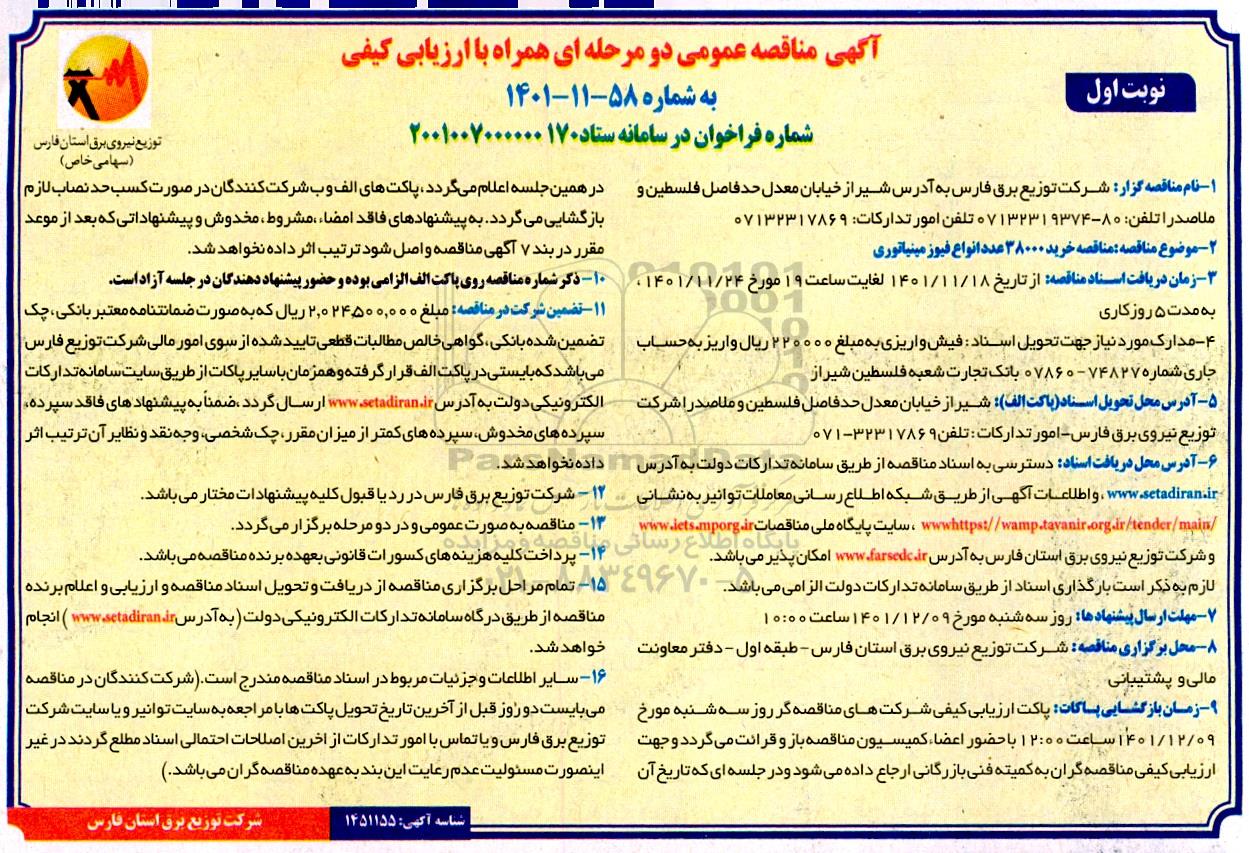 آگهی مناقصه عمومی دو مرحله ای همراه با ارزیابی کیفی
به شماره ۵۸-۱۱-۱۴۰۱
شماره فراخوان در سامانه ستاد ۲۰۰۱۰۰۷۰۰۰۰۰۰۱۷۰
نوبت اول
توزیع نیروی برق استان فارس
(سهامی خاص)
۱-نام مناقصه گزار: شرکت توزیع برق فارس به آدرس شیراز خیابان معدل حدفاصل فلسطین و
ملاصدرا تلفن: ۸۰-۰۷۱۳۲۳۱۹۳۷۴ تلفن امور تدارکات: ۰۷۱۳۲۳۱۷۸۶۹
۲-موضوع مناقصه: مناقصه خرید ۳۸۰۰۰ عدد انواع فیوز مینیاتوری
۳-زمان دریافت اسناد مناقصه: از تاریخ ۱۴۰۱/۱۱/۱۸ لغایت ساعت ۱۹ مورخ ۱۴۰۱/۱۱/۲۴ ،
به مدت ۵ روز کاری
۴-مدارک مورد نیاز جهت تحویل اسناد: فیش واریزی به مبلغ ۲۲۰۰۰۰ ریال واریز به حساب
جاری شماره ۷۴۸۲۷-۰۷۸۶۰ بانک تجارت شعبه فلسطین شیراز
۵-آدرس محل تحویل اسناد(پاکت الف): شیراز خیابان معدل حدفاصل فلسطین و ملاصدرا شرکت
توزیع نیروی برق فارس-امور تدارکات: تلفن ۳۲۳۱۷۸۶۹-۰۷۱
۶-آدرس محل دریافت اسناد: دسترسی به اسناد مناقصه از طریق سامانه تدارکات دولت به آدرس
www.setadiran.ir ، و اطلاعات آگهی از طریق شبکه اطلاع رسانی معاملات توانیر به نشانی
wwwhttps://wamp.tavanir.org.ir/tender/main/ ، سایت پایگاه ملی مناقصات www.iets.mporg.ir
و شرکت توزیع نیروی برق استان فارس به آدرس www.farsedc.ir امکان پذیر می باشد.
لازم به ذکر است بارگذاری اسناد از طریق سامانه تدارکات دولت الزامی می باشد.
۷-مهلت ارسال پیشنهادها: روز سه شنبه مورخ ۱۴۰۱/۱۲/۰۹ ساعت ۱۰:۰۰
۸-محل برگزاری مناقصه: شرکت توزیع نیروی برق استان فارس-طبقه اول-دفتر معاونت
مالی و پشتیبانی
۹-زمان بازگشایی پاکات: پاکت ارزیابی کیفی شرکت های مناقصه گر روز سه شنبه مورخ
۱۴۰۱/۱۲/۰۹ ساعت ۱۲:۰۰ با حضور اعضاء کمیسیون مناقصه باز و قرائت می گردد و جهت
ارزیابی کیفی مناقصه گران به کمیته فنی بازرگانی ارجاع داده می شود و در جلسه ای که تاریخ آن
در همین جلسه اعلام می گردد، پاکت های الف و ب شرکت کنندگان در صورت کسب حد نصاب لازم
بازگشایی می گردد. به پیشنهادهای فاقد امضاء، مشروط، مخدوش و پیشنهاداتی که بعد از موعد
مقرر در بند ۷ آگهی مناقصه واصل شود ترتیب اثر داده نخواهد شد.
۱۰- ذکر شماره مناقصه روی پاکت الف الزامی بوده و حضور پیشنهاد دهندگان در جلسه آزاد است.
۱۱-تضمین شرکت در مناقصه: مبلغ ۲,۰۲۴,۵۰۰,۰۰۰ ریال که به صورت ضمانتنامه معتبر بانکی، چک
تضمین شده بانکی، گواهی خالص مطالبات قطعی تایید شده از سوی امور مالی شرکت توزیع فارس
می باشد که بایستی در پاکت الف قرار گرفته و همزمان با سایر پاکات از طریق سایت سامانه تدارکات
الکترونیکی دولت به آدرس www.setadiran.ir ارسال گردد، ضمناً به پیشنهادهای فاقد سپرده،
سپرده های مخدوش، سپرده های کمتر از میزان مقرر، چک شخصی، وجه نقد و نظایر آن ترتیب اثر
داده نخواهد شد.
۱۲- شرکت توزیع برق فارس در رد یا قبول کلیه پیشنهادات مختار می باشد.
۱۳- مناقصه به صورت عمومی و در دو مرحله برگزار می گردد.
۱۴- پرداخت کلیه هزینه های کسورات قانونی بعهده برنده مناقصه می باشد.
۱۵- تمام مراحل برگزاری مناقصه از دریافت و تحویل اسناد مناقصه و ارزیابی و اعلام برنده
مناقصه از طریق درگاه سامانه تدارکات الکترونیکی دولت ( به آدرس www.setadiran.ir ) انجام
خواهد شد.
۱۶- سایر اطلاعات و جزئیات مربوط در اسناد مناقصه مندرج است.(شرکت کنندگان در مناقصه
می بایست دو روز قبل از آخرین تاریخ تحویل پاکت ها با مراجعه به سایت توانیر و یا سایت شرکت
توزیع برق فارس و یا تماس با امور تدارکات از اخرین اصلاحات احتمالی اسناد مطلع گردند در غیر
اینصورت مسئولیت عدم رعایت این بند به عهده مناقصه گران می باشد.)
شناسه آگهی: ۱۴۵۱۱۵۵
شرکت توزیع برق استان فارس
ParsNamadData
پایگاه اطلاع رسانی مناقصه و مزایده